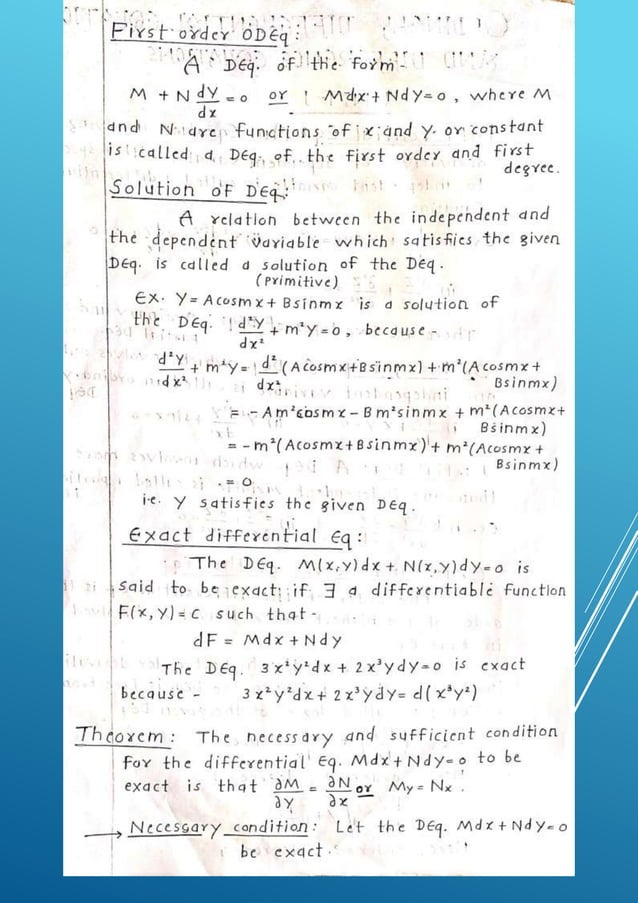 First order ODEq :
A DEq. of the form -
M + N dy/dx = 0 or Mdx + Ndy = 0 , where M
and N are functions of x and y or constant
is called a DEq. of the first order and first
degree.
Solution of DEq :
A relation between the independent and
the dependent variable which satisfies the given
DEq. is called a solution of the DEq .
(Primitive)
Ex. Y = Acosmx + Bsinmx is a solution of
the DEq. d²y/dx² + m²y = 0 , because -
d²y/dx² + m²y = d²/dx² (Acosmx + Bsinmx) + m²(Acosmx +
Bsinmx)
= - Am²cosmx - Bm²sinmx + m²(Acosmx +
Bsinmx)
= - m²(Acosmx + Bsinmx) + m²(Acosmx +
Bsinmx)
= 0
i.e. Y satisfies the given DEq .
Exact differential Eq :
The DEq. M(x,y)dx + N(x,y)dy = 0 is
said to be exact if ∃ a differentiable function
F(x,y) = c such that -
dF = Mdx + Ndy
The DEq. 3x²y²dx + 2x³ydy = 0 is exact
because - 3x²y²dx + 2x³ydy = d(x³y²)
Theorem : The necessary and sufficient condition
For the differential Eq. Mdx + Ndy = 0 to be
exact is that ∂M/∂y = ∂N/∂x or My = Nx .
→ Necessary condition : Let the DEq. Mdx + Ndy = 0
be exact .